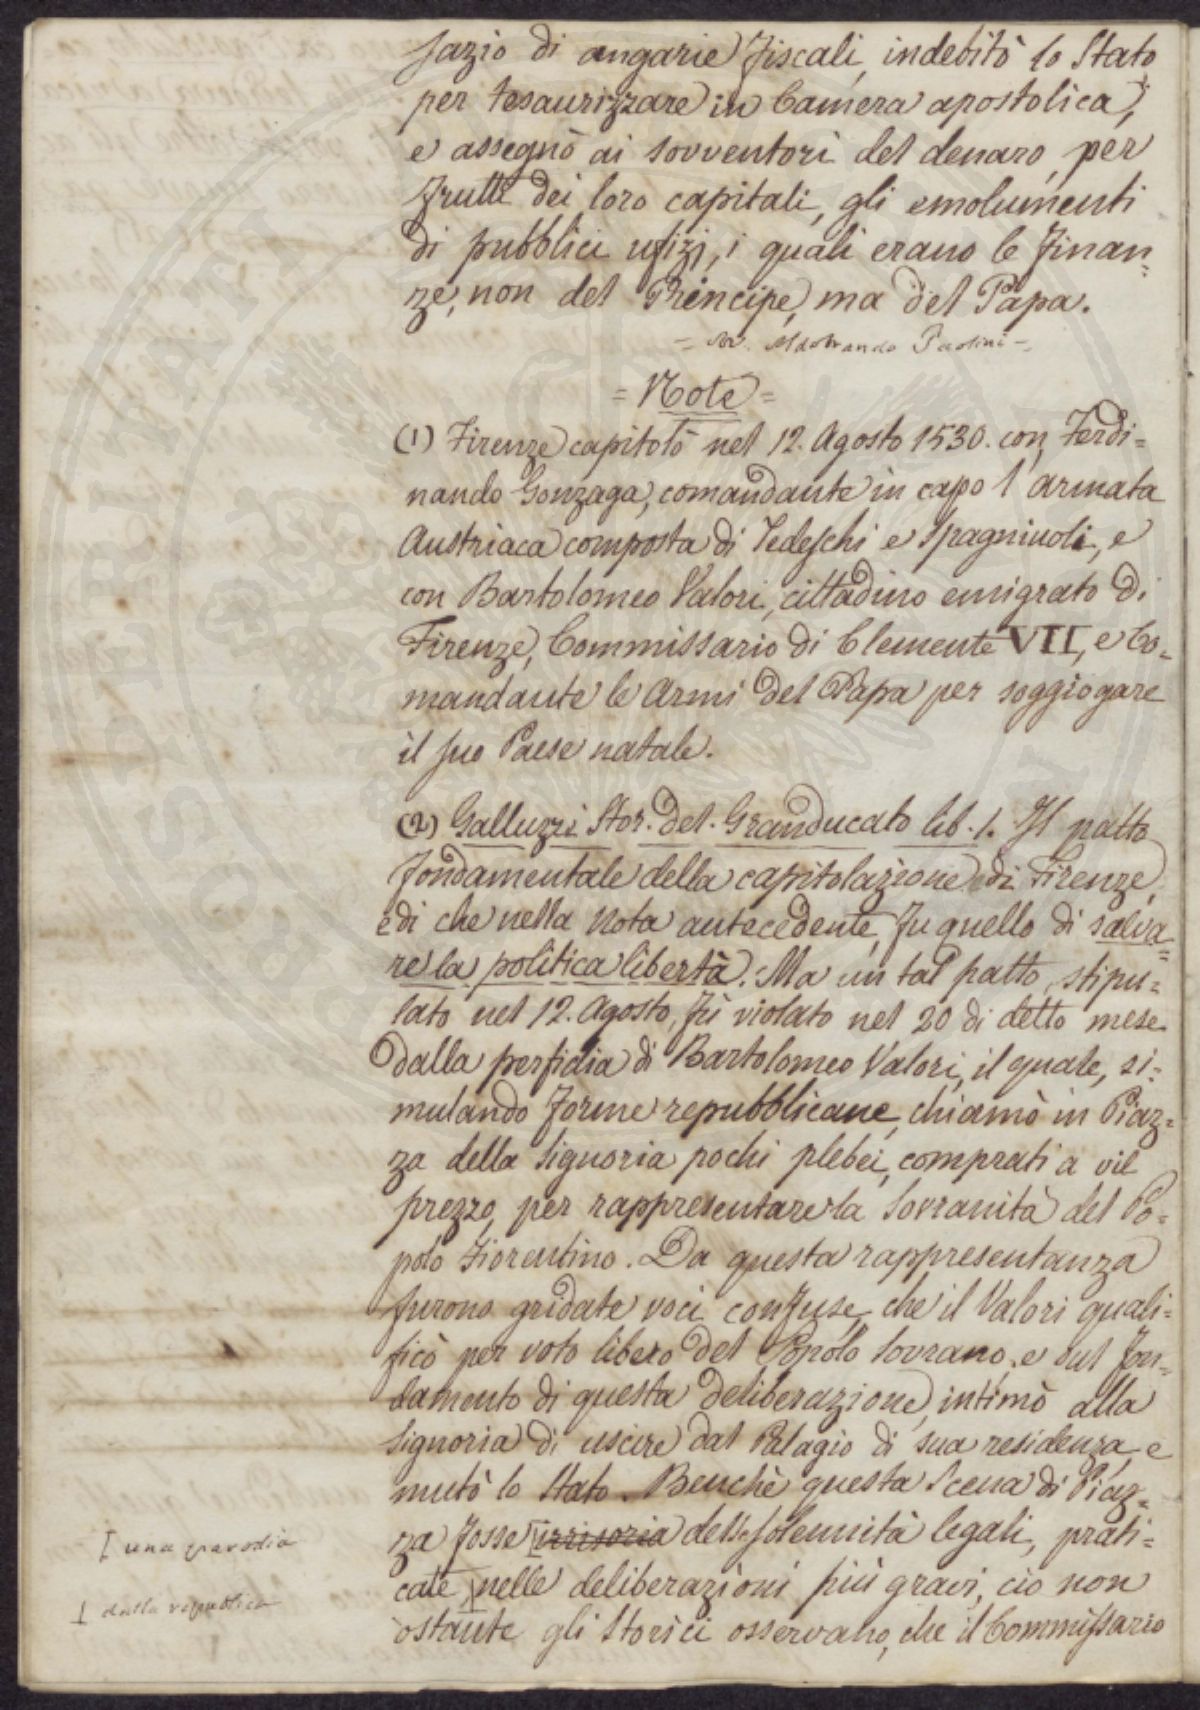 sazio di angarie fiscali, indebitò lo Stato
per tesaurizzare in Camera apostolica,
e assegnò ai sovventori del denaro, per
frutti dei loro capitali, gli emolumenti
di pubblici ufizj, i quali erano le Finan=
ze, non del Principe, ma del Papa.
= Av. Aldobrando Paolini =
= Note =
(1) Firenze capitolò nel 12. Agosto 1530. con Ferdi=
nando Gonzaga, comandante in capo l'armata
Austriaca composta di Tedeschi e Spagniuoli, e
con Bartolomeo Valori, cittadino emigrato di
Firenze, Commissario di Clemente VII, e Co=
mandante le Armi del Papa per soggiogare
il suo Paese natale.
(2) Galluzzi Stor. del. Granducato lib. 1. Il patto
fondamentale della capitolazione di Firenze,
e di che nella Nota antecedente, fu quello di salva=
re la politica libertà. Ma un tal patto, stipu=
lato nel 12. Agosto, fù violato nel 20 di detto mese
dalla perfidia di Bartolomeo Valori, il quale, si=
mulando forme repubblicane, chiamò in Piaz=
za della Signoria pochi plebei, comprati a vil
prezzo, per rappresentare la Sovranità del Po=
polo Fiorentino. Da questa rappresentanza
furono gridate voci confuse, che il Valori quali=
ficò per voto libero del Popolo Sovrano, e sul fon=
damento di questa deliberazione, intimò alla
Signoria di uscire dal Palagio di sua residenza, e
mutò lo Stato. Benchè questa Scena di Piaz=
za fosse [irrisoria delle solennità legali, prati=
[ una parodia
cate nelle deliberazioni più gravi, ciò non
dalla repubblica
ostante gli Storici osservano, che il Commissario
PROSPERITATI